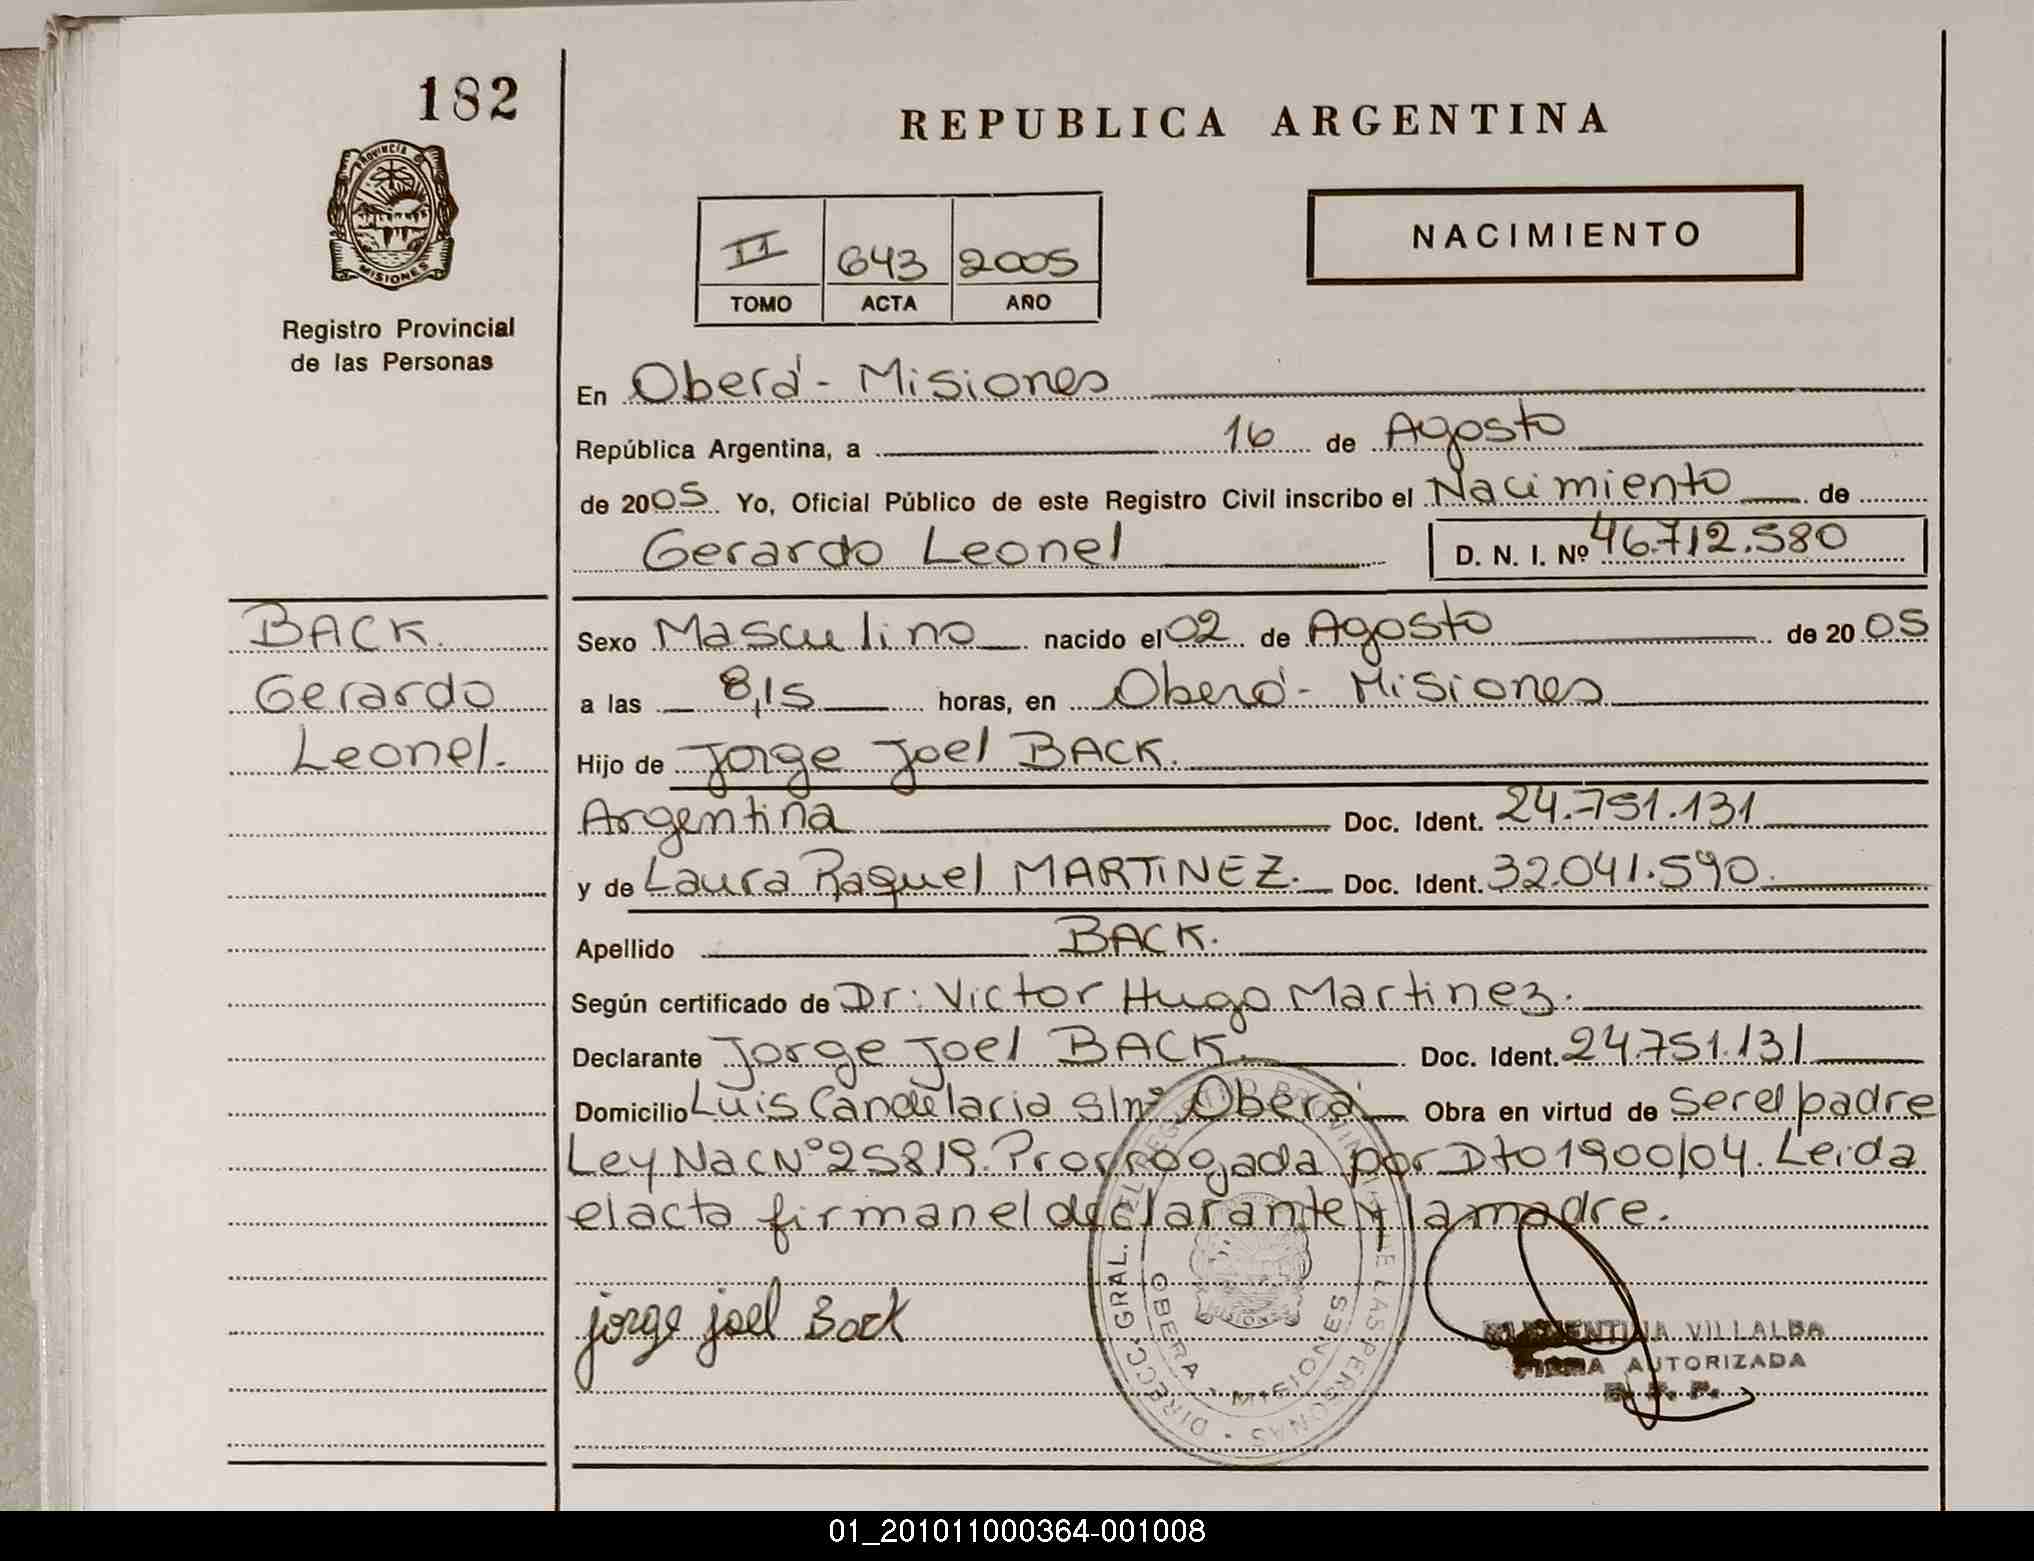 182
REPUBLICA ARGENTINA
PROVINCIA DE
MISIONES
Registro Provincial
de las Personas
II 643 2005
TOMO ACTA AÑO
NACIMIENTO
En Oberá - Misiones
República Argentina, a 16 de Agosto
de 2005 Yo, Oficial Público de este Registro Civil inscribo el Nacimiento de
Gerardo Leonel D. N. I. Nº 46.712.580
BACK.
Gerardo
Leonel.
Sexo Masculino nacido el 02 de Agosto de 2005
a las 8,15 horas, en Oberá - Misiones
Hijo de Jorge Joel BACK.
Argentina Doc. Ident. 24.751.131
y de Laura Raquel MARTINEZ. Doc. Ident. 32.041.590.
Apellido BACK.
Según certificado de Dr: Victor Hugo Martinez.
Declarante Jorge Joel BACK. Doc. Ident. 24.751.131
Domicilio Luis Candelaria s/nº Oberá Obra en virtud de Ser el padre
Ley Nac Nº 25819. Prorrogada por Dto 1900/04. Leida
el acta firman el declarante y la madre.
jorge joel Back
DIRECC. GRAL. DEL REGISTRO PROVINCIAL DE LAS PERSONAS
OBERA - MISIONES
VILLALBA
FIRMA AUTORIZADA
R. P. P.
01_201011000364-001008